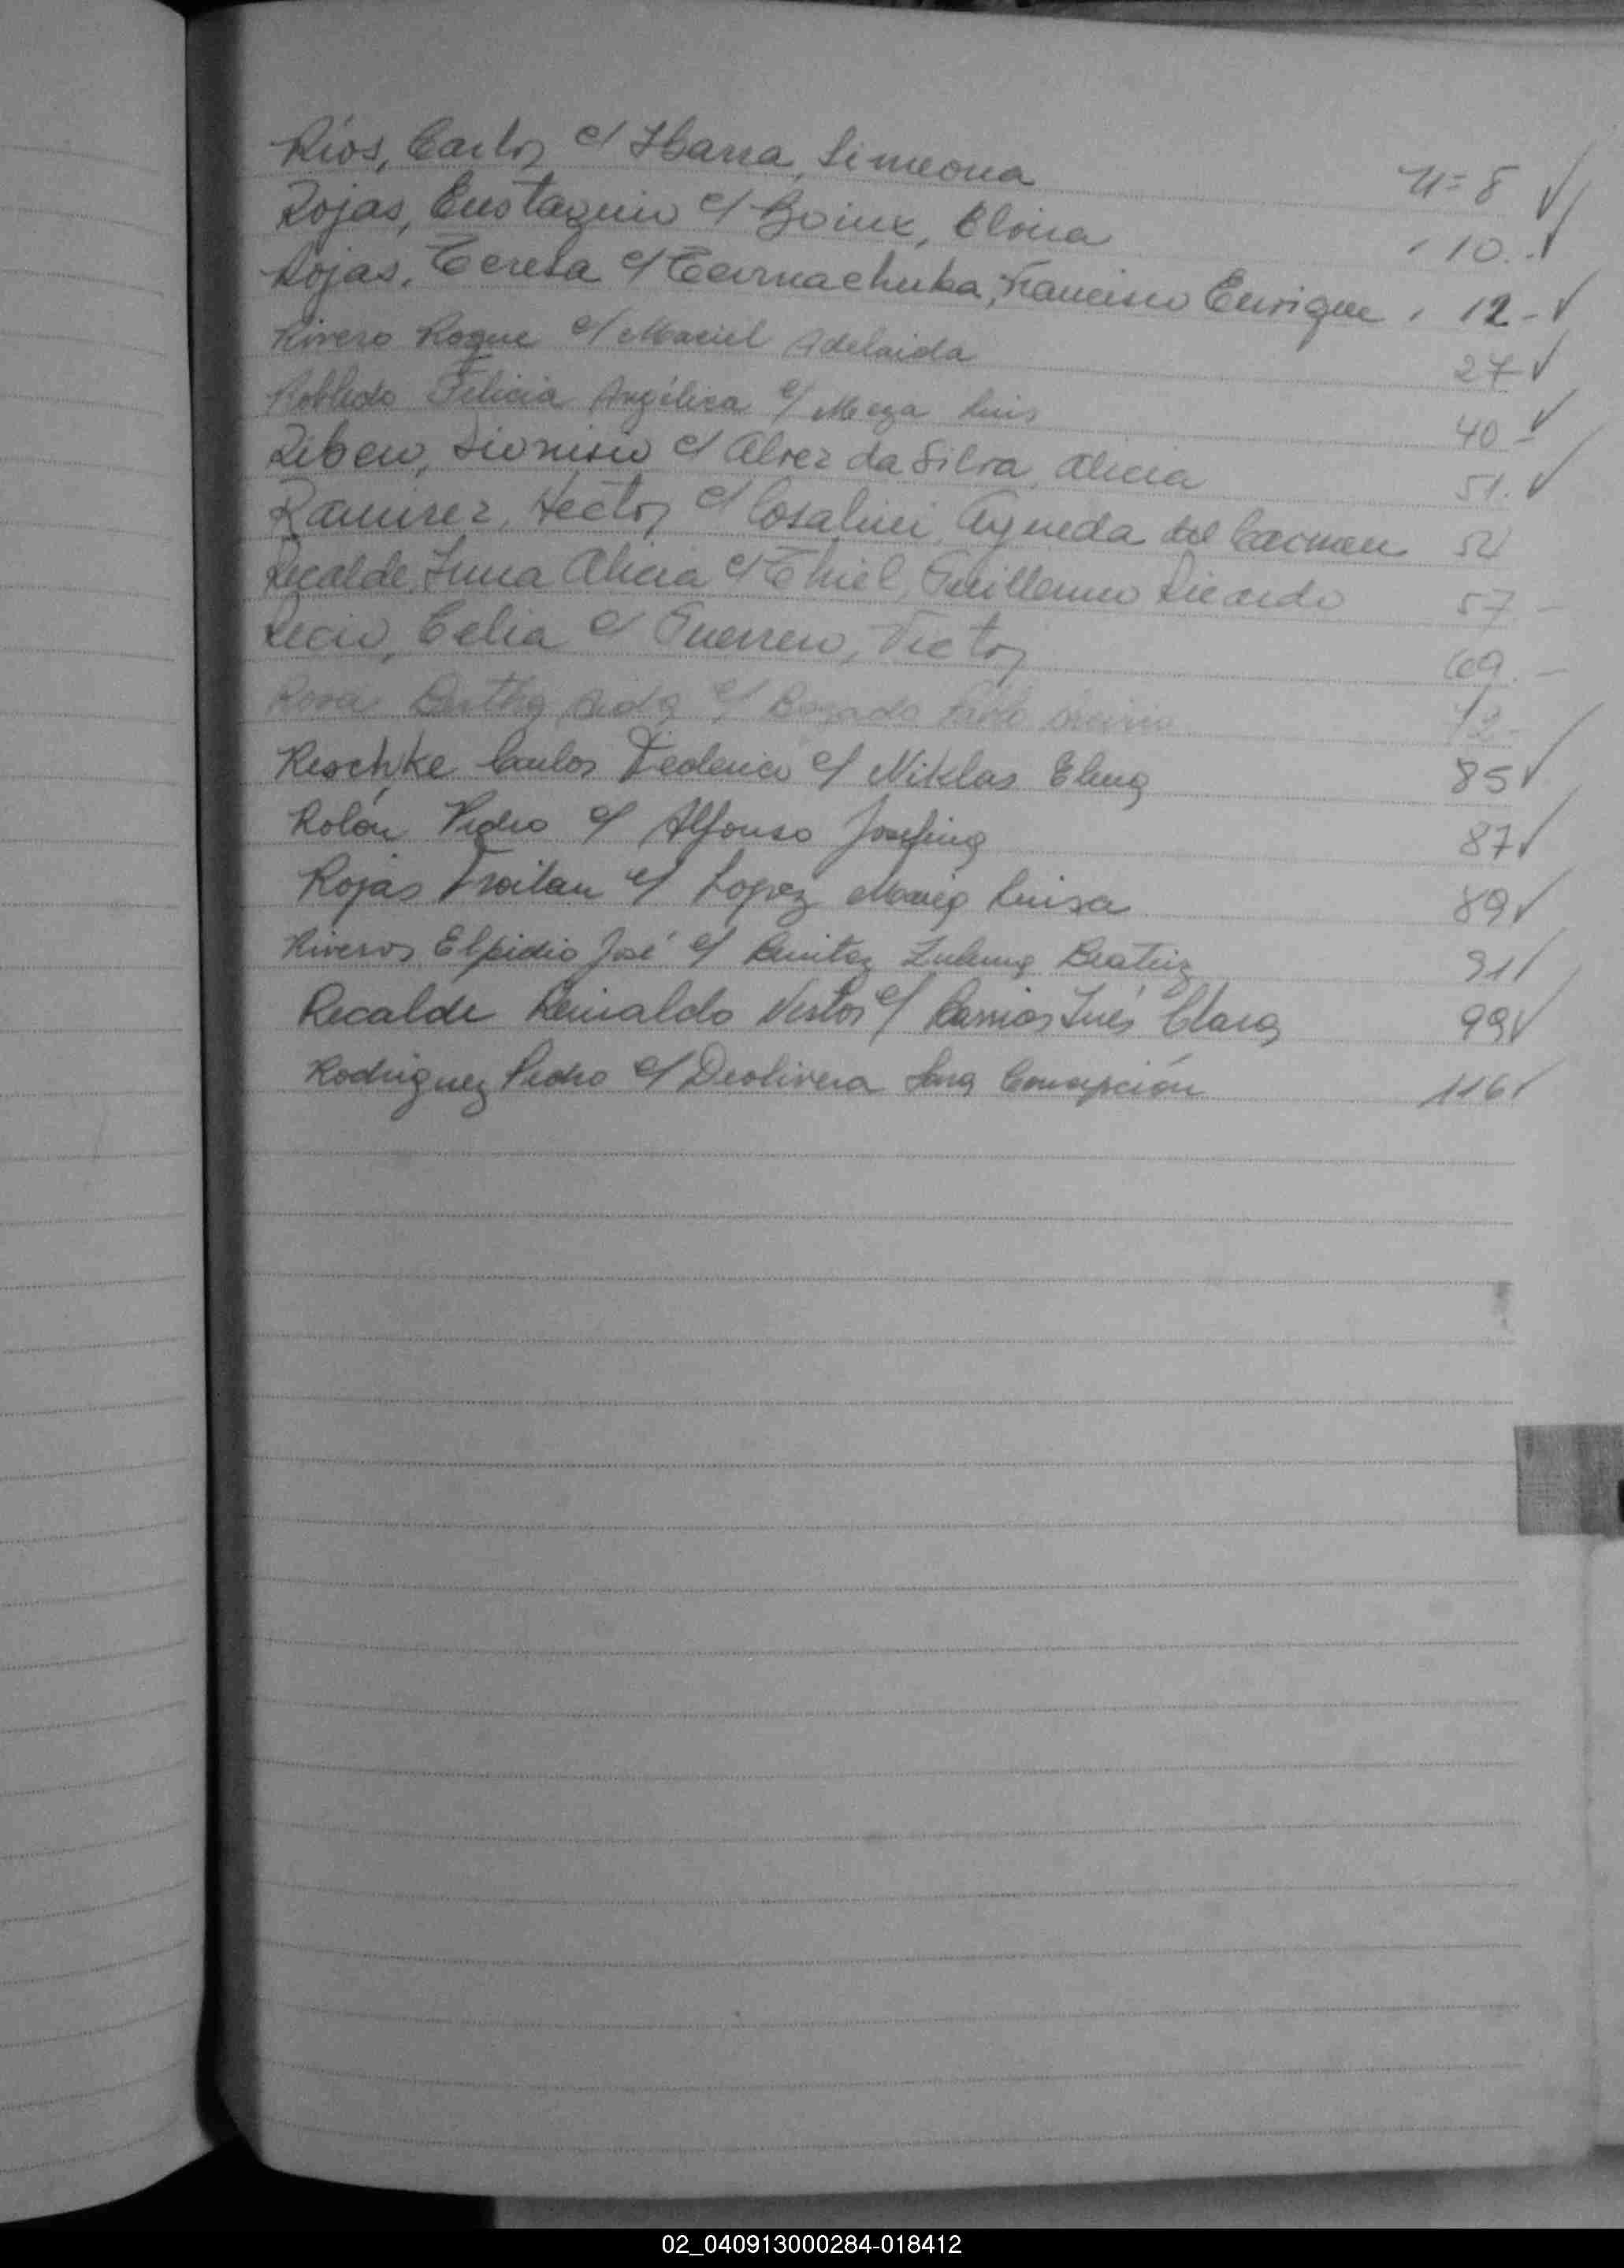 Ríos, Carlos c/ Ibarra, Simeona Nº 8 ✓
Rojas, Eustaquio c/ Goiux, Eloisa " 10.. ✓
Rojas, Teresa c/ Carnachuka, Francisco Enrique " 12 - ✓
Rivero Roque c/ Maciel Adelaida 27 ✓
Robledo Felicia Angélica c/ Meza Luis 40 - ✓
Ribero, Dionisio c/ Alvez da Silva, Alicia 51. ✓
Ramirez, Hector c/ Cosalini, Agueda del Carmen 54
Recalde, Irma Alicia c/ Thiel, Guillermo Ricardo 57 -
Recio, Celia c/ Guerrero, Victor 69. -
Rosa Bertha Aida c/ Bozado
Reschke Carlos Federico c/ Niklas Elena 85 ✓
Rolón Pedro c/ Alfonso Josefina 87 ✓
Rojas Froilan c/ Lopez Maria Luisa 89 ✓
Riveros Elpidio José c/ Benitez Zulema Beatriz 91 ✓
Recalde Reinaldo Nestor c/ Barrios Inés Clara 99 ✓
Rodriguez Pedro c/ Deolivera Concepción 116 ✓
02_040913000284-018412